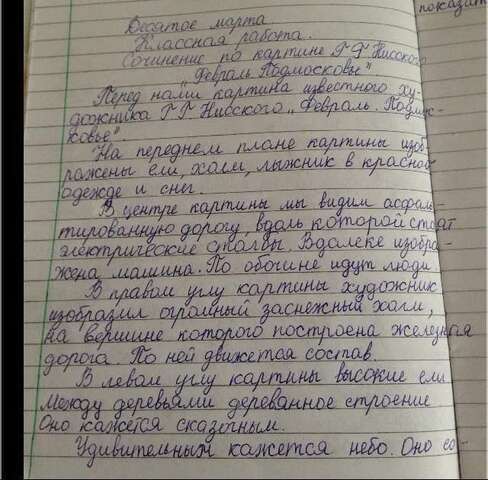 показат
Десятое марта
Классная работа.
Сочинение по картине Г Г Нисского
„Февраль Подмосковье"
Перед нами картина известного ху-
дожника Г Г Нисского „Февраль. Подмос-
ковье"
На переднем плане картины изоб-
ражены ели, холм, лыжник в красной
одежде и снег.
В центре картины мы видим асфаль-
тированную дорогу, вдоль которой стоят
электрические столбы. Вдалеке изобра-
жена машина. По обочине идут люди
В правом углу картины художник
изобразил огромный заснежный холм,
на вершине которого построена железная
дорога. По ней движется состав.
В левом углу картины высокие ели
Между деревьями дереванное строение
Оно кажется сказочным.
Удивительным кажется небо. Оно со-